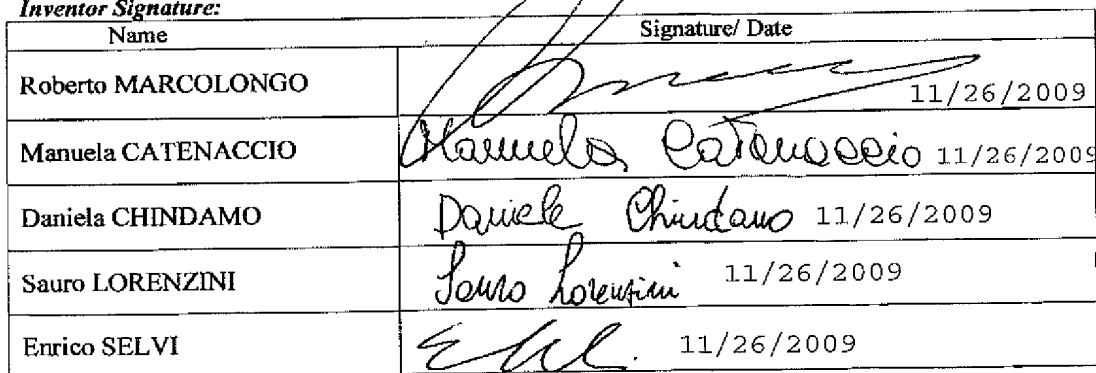 Inventor Signature:
Name Signature/ Date
Roberto MARCOLONGO 11/26/2009
Manuela CATENACCIO Manuela Catenaccio 11/26/2009
Daniela CHINDAMO Daniela Chindamo 11/26/2009
Sauro LORENZINI Sauro Lorenzini 11/26/2009
Enrico SELVI 11/26/2009